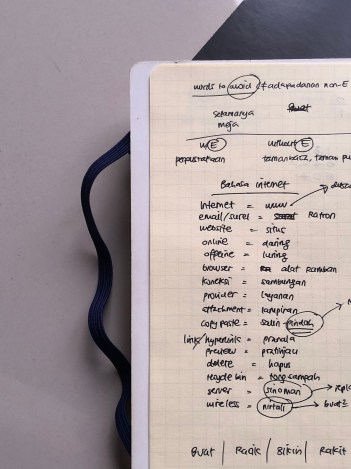 words to avoid & adapadanan non-E
selamanya
meja
w/ E without E
perpustakaan tamanbaca, taman pu
Bahasa internet
Internet = www
email/surel = Ratron
website = situs
online = daring
offline = luring
browser = alat ramban
koneksi = sambungan
provider = layanan
attachment = lampiran
copy paste = salin pindah
links/hyperlinks = pranala
preview = pratinjau
delete = hapus
recycle bin = tong sampah
server = sinoman
wireless = nirtali
Buat | Racik | Bikin | Rakit